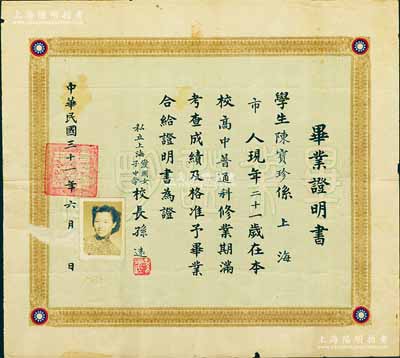 畢業證明書
學生陳寶珍係上海
市人現年二十一歲在本
校高中普通科修業期滿
考查成績及格准予畢業
合給證明書為證
私立上海愛國女子中學校長孫達
中華民國三十一年六月 日
上海陽明拍賣
上海陽明拍賣